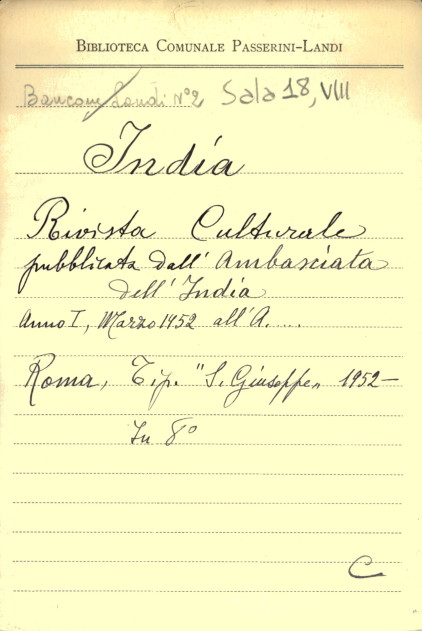 BIBLIOTECA COMUNALE PASSERINI-LANDI
Bancone Landi N°2 Sala 18, VIII
India
Rivista Culturale
pubblicata dall'Ambasciata
dell'India
Anno I, Marzo 1952 all'A. ....
Roma, Tip. "S. Giuseppe" 1952-
In 8°
C